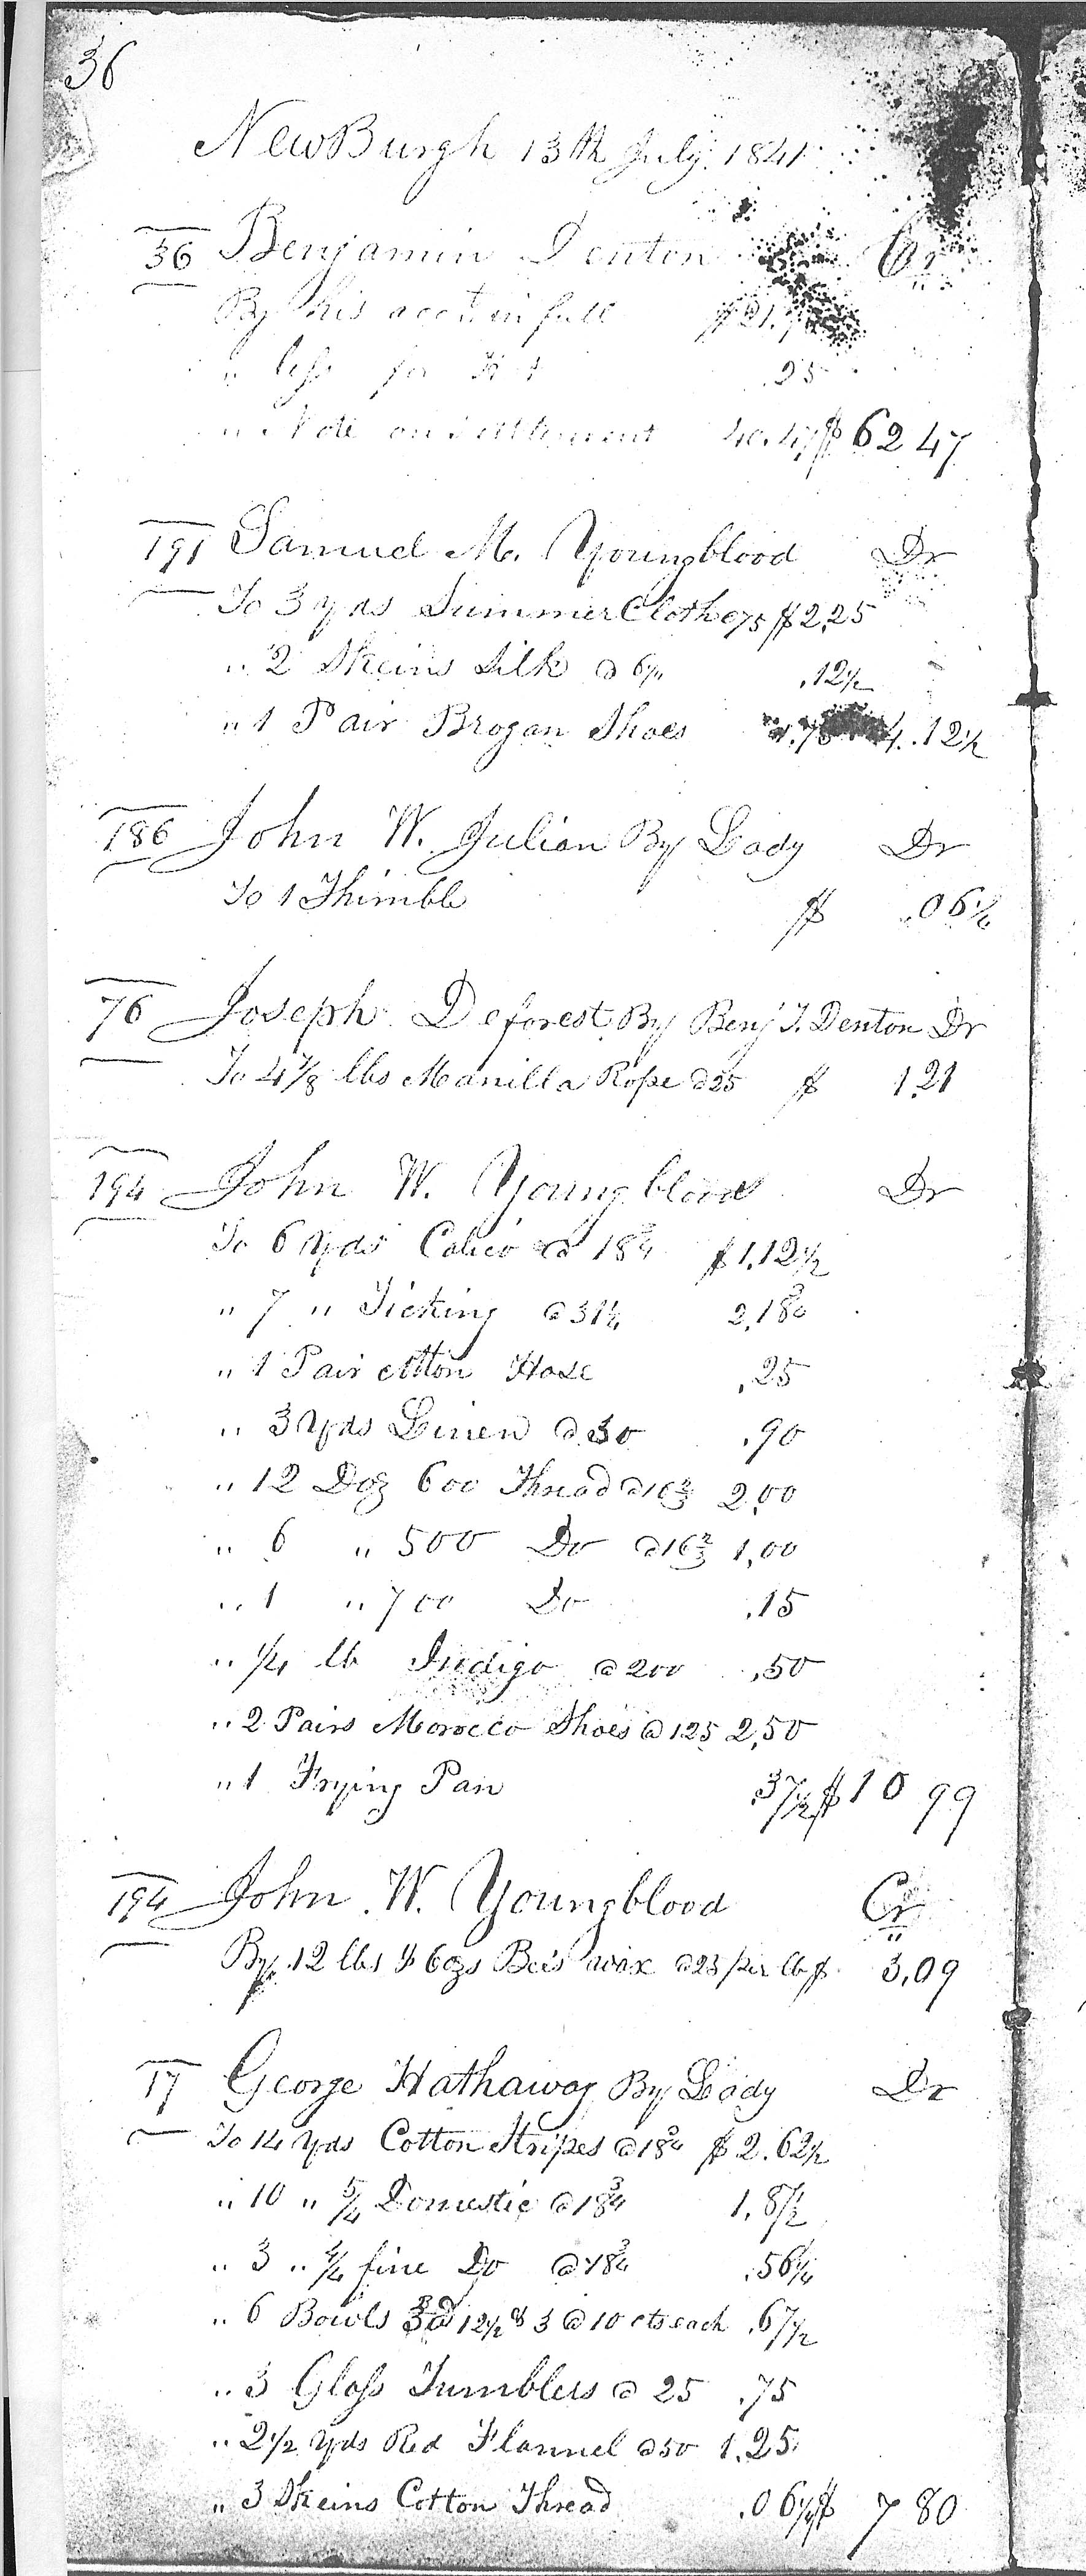 36
NewBurgh 13th July 1841
36 Benjamin Denton Cr
By his acct in full $21.
" less for .25
" Note on Settlement 40.47 $ 62 47
191 Samuel M. Youngblood Dr
To 3 yds Summer Cloth @75 $2.25
" 2 Skeins Silk @ 6¼ .12½
" 1 Pair Brogan Shoes 1.75 4.12½
186 John W. Julian By Lady Dr
To 1 Thimble $ .06¼
76 Joseph Deforest By Benj T. Denton Dr
To 4⅞ lbs Manilla Rope @25 $ 1.21
194 John W. Youngblood Dr
To 6 Yds Calico @ 18¾ $1.12½
" 7 " Ticking @ 31¼ 2.18¾
" 1 Pair Cotton Hose .25
" 3 Yds Linen @ 30 .90
" 12 Doz 600 Thread @16⅔ 2.00
" 6 " 500 Do @16⅔ 1.00
" 1 " 700 Do .15
" ¼ lb Indigo @ 200 .50
" 2 Pairs Morocco Shoes @ 125 2.50
" 1 Frying Pan .37½ $10 99
194 John W. Youngblood Cr
By 12 lbs & 6 ozs Bees wax @25 per lb $ 3.09
17 George Hathaway By Lady Dr
To 14 Yds Cotton Stripes @ 18¾ $ 2.62½
" 10 " 5/4 Domestic @ 18¾ 1.87½
" 3 " 4/4 fine Do @ 18¾ .56¼
" 6 Bowls 3 @ 12½ & 3 @ 10 cts each .67½
" 3 Glass Tumblers @ 25 .75
" 2½ Yds Red Flannel @ 50 1.25
" 3 Skeins Cotton Thread .06¼ $ 7 80